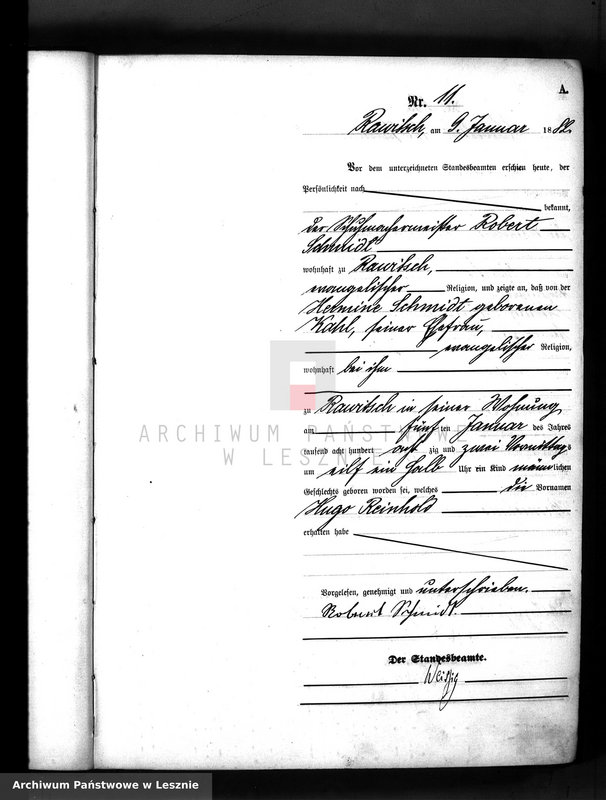 A.
Nr. 11.
Rawitsch, am 9. Januar 1882.
Vor dem unterzeichneten Standesbeamten erschien heute, der
Persönlichkeit nach
bekannt,
der Schuhmachermeister Robert
Schmidt
wohnhaft zu Rawitsch,
evangelischer Religion, und zeigte an, daß von der
Hermine Schmidt geborenen
Kahl, seiner Ehefrau,
evangelischer Religion,
wohnhaft bei ihm
zu Rawitsch in seiner Wohnung
am fünften Januar des Jahres
tausend acht hundert achtzig und zwei Vormittags
um eilf ein halb Uhr ein Kind männlichen
Geschlechts geboren worden sei, welches die Vornamen
Hugo Reinhold
erhalten habe
Vorgelesen, genehmigt und unterschrieben.
Robert Schmidt.
Der Standesbeamte.
ARCHIWUM PAŃSTWOWE
W LESZNIE
Archiwum Państwowe w Lesznie